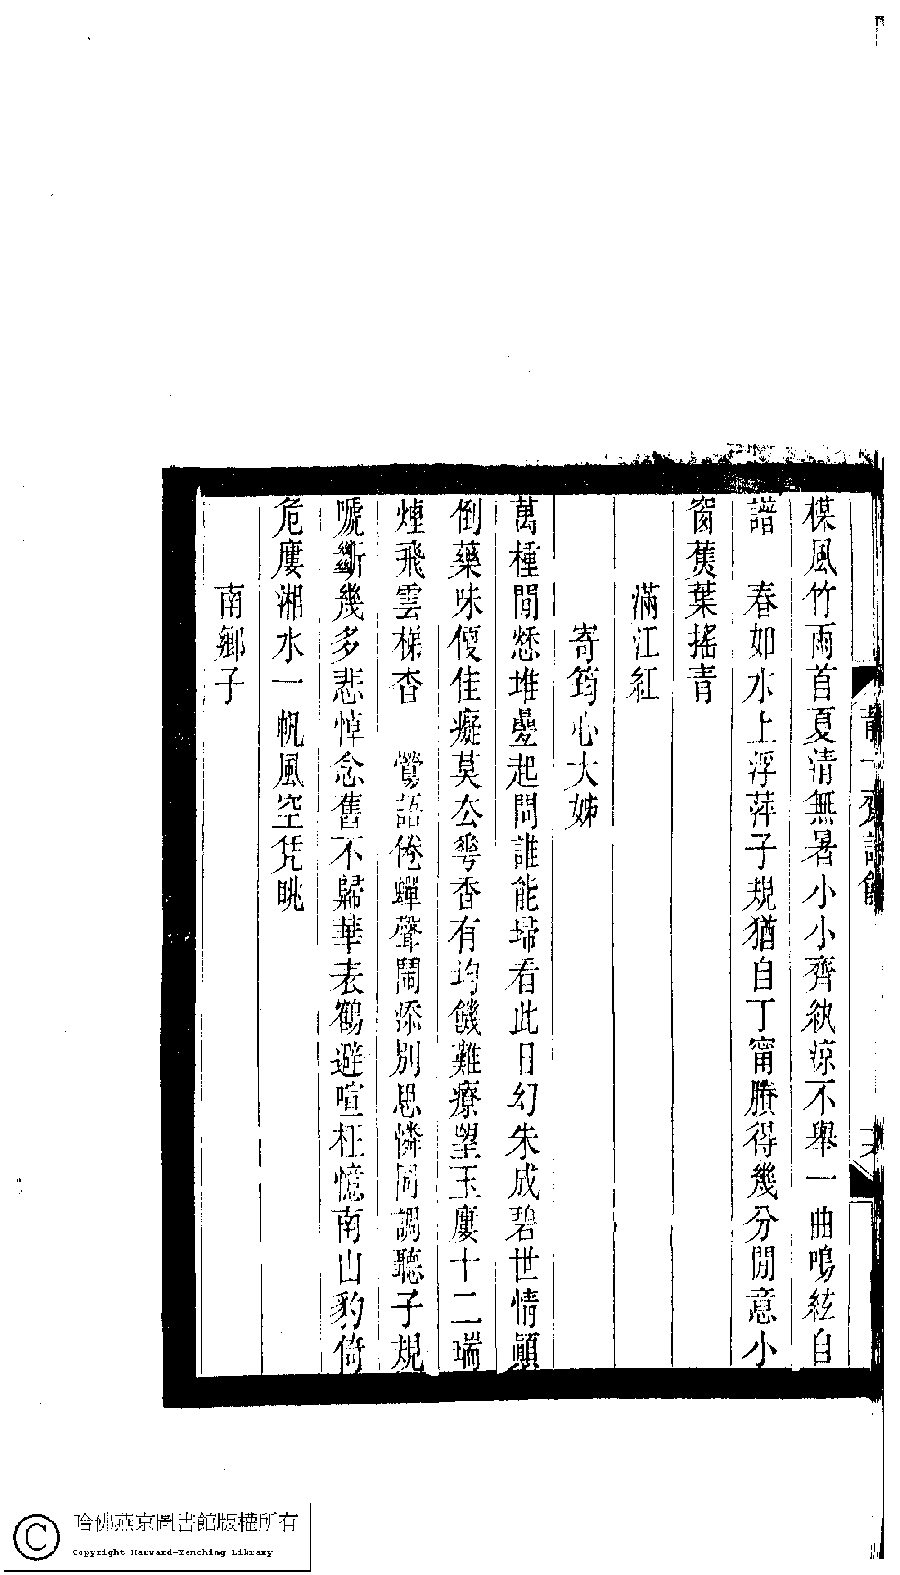 楳風竹雨首夏清無暑小小齊紈凉不舉一曲鳴絃自
譜　春如水上浮萍子規猶自丁甯賸得幾分閒意小
窗蕉葉搖青
滿江紅
寄筠心大姊
萬種閒愁堆壘起問誰能埽看此日幻朱成碧世情顚
倒藥味便佳癡莫公香有均饑難療望玉廔十二瑞
煙飛雲梯杳　鶯語倦蟬聲鬧添別思憐同調聽子規
嗁斷幾多悲悼念舊不歸華表鶴避喧枉憶南山豹倚
危廔湘水一帆風空凭眺
南鄉子
哈佛燕京圖書館版權所有
Copyright Harvard-Yenching Library